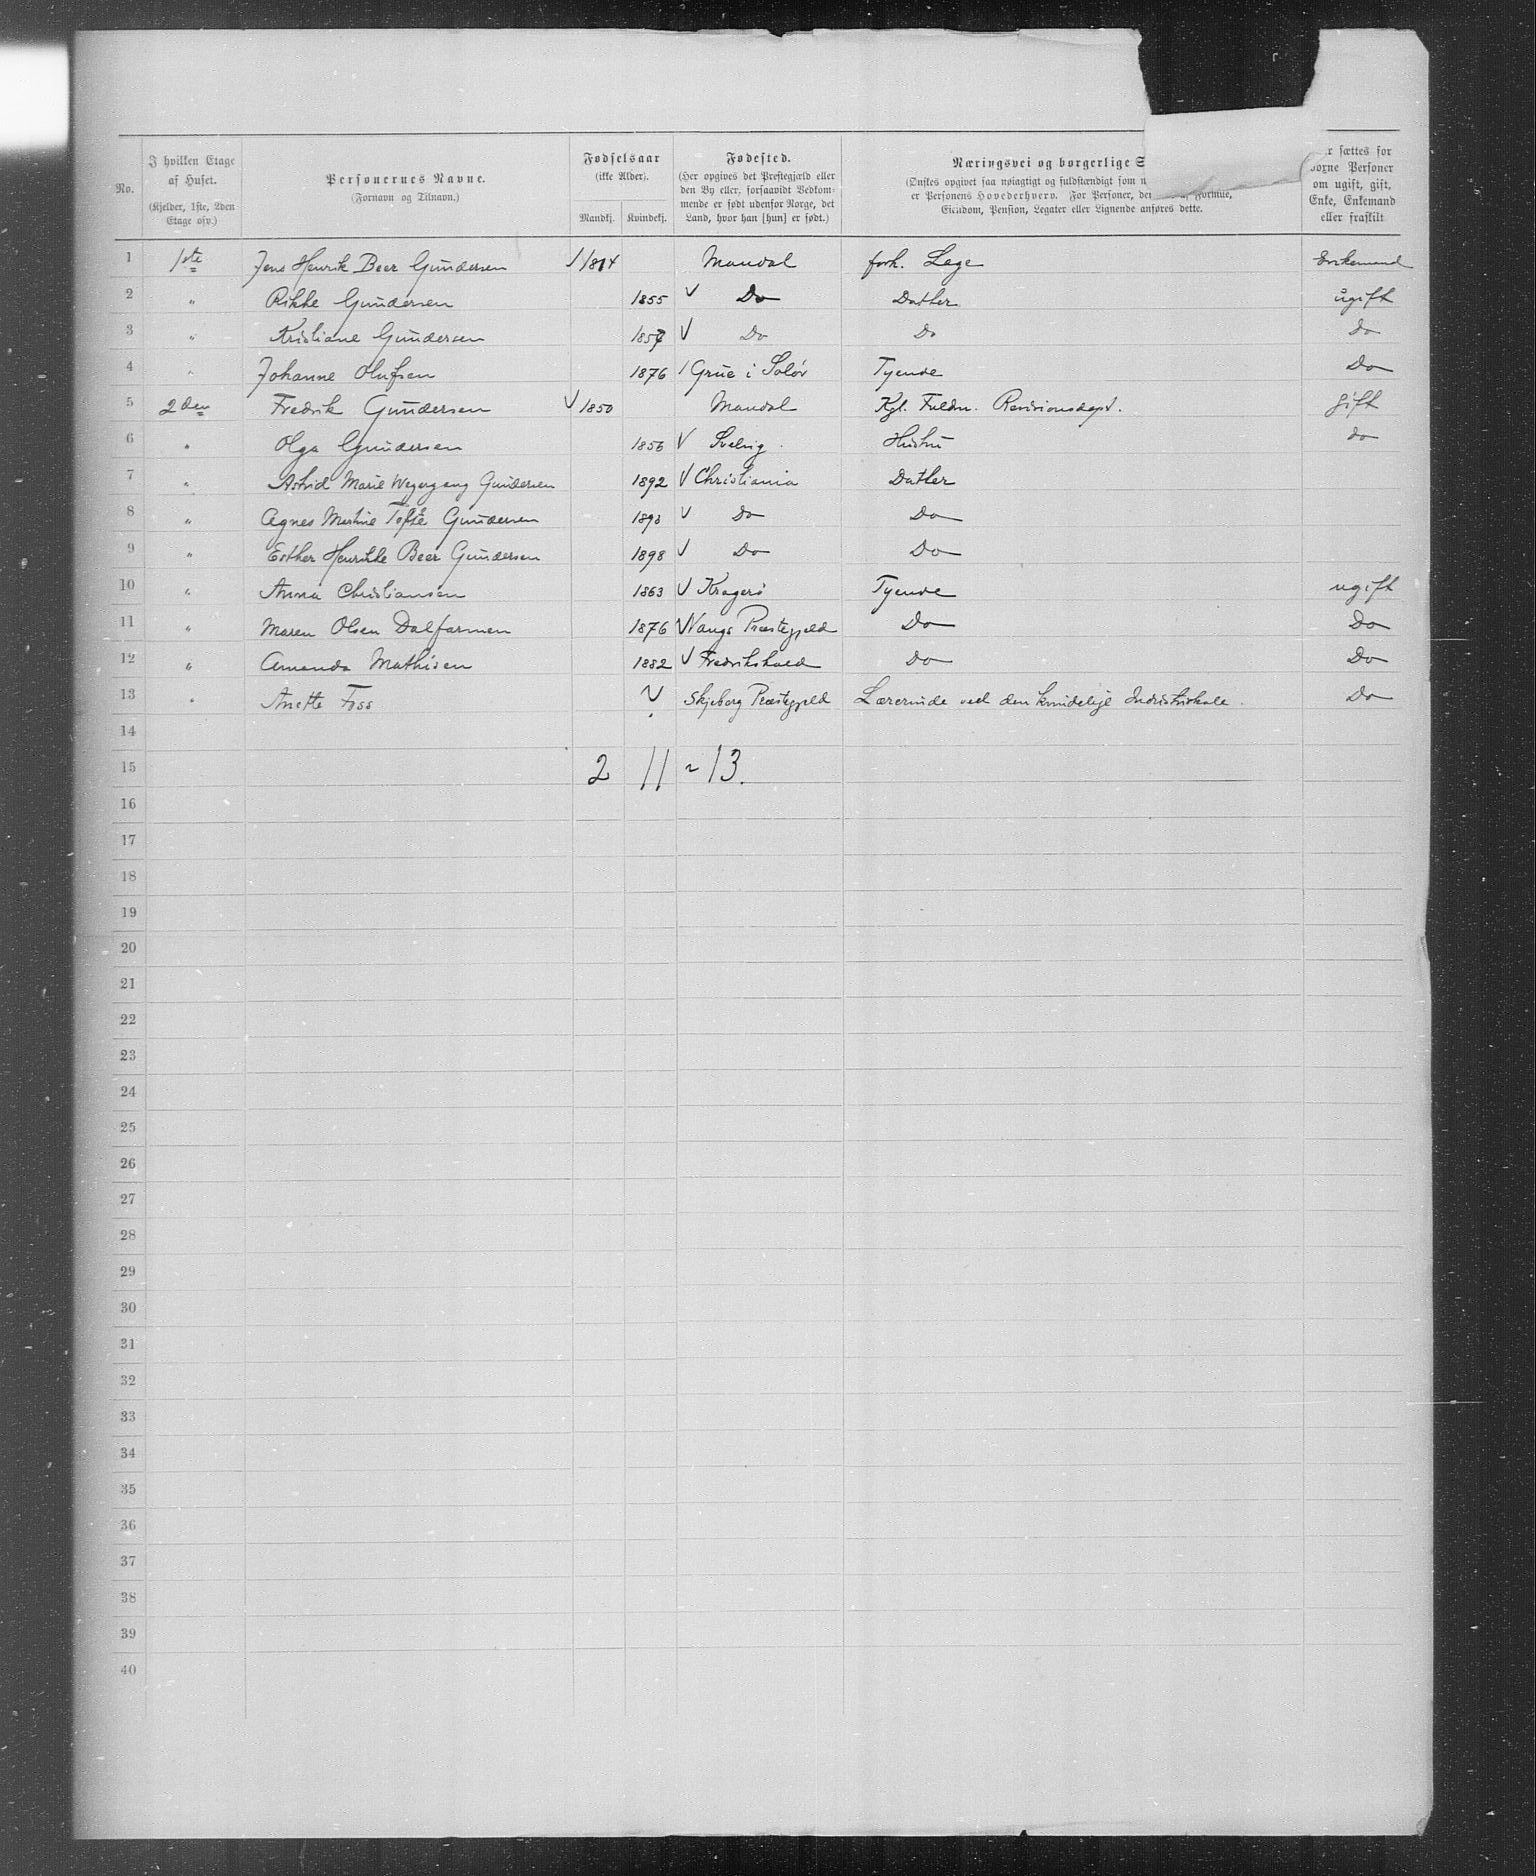 No.
I hvilken Etage
af Huset.
(Kjelder, 1ste, 2den
Etage osv.)
Personernes Navne.
(Fornavn og Tilnavn.)
Fødselsaar
(ikke Alder).
Mandkj. Kvindekj.
Fødested.
(Her opgives det Prestegjæld eller
den By eller, forsaavidt Vedkom-
mende er født udenfor Norge, det
Land, hvor han [hun] er født.)
Næringsvei og borgerlige S
(Ønskes opgivet saa nøiagtigt og fuldstændigt som
er Personens Hovederhverv. For Personer, der af Formue,
Eiendom, Pension, Legater eller Lignende anføres dette.
r sættes for
oxne Personer
om ugift, gift,
Enke, Enkemand
eller fraskilt
1 1ste Jens Henrik Beer Gundersen 1814 Mandal forh. Læge Enkemand
2 " Rikke Gundersen 1855 Do Datter ugift
3 " Kristiane Gundersen 1857 Do Do do
4 " Johanne Olufsen 1876 Grue i Solør Tyende Do
5 2den Fredrik Gundersen 1850 Mandal Kgl. Fuldm. Revisionsdept. gift
6 " Olga Gundersen 1856 Svelvig Hustru do
7 " Astrid Marie Wegergang Gundersen 1892 Christiania Datter
8 " Agnes Martine Tofte Gundersen 1893 Do Do
9 " Esther Henrikke Beer Gundersen 1898 Do Do
10 " Anna Christiansen 1863 Kragerø Tyende ugift
11 " Maren Olsen Dalfarmen 1876 Vangs Præstegjeld Do Do
12 " Amanda Mathisen 1882 Fredrikshald Do Do
13 " Anette Foss Skjeberg Præstegjeld Lærerinde ved den kvindelige Industriskole. Do
14
15 2 11 ~ 13.
16
17
18
19
20
21
22
23
24
25
26
27
28
29
30
31
32
33
34
35
36
37
38
39
40